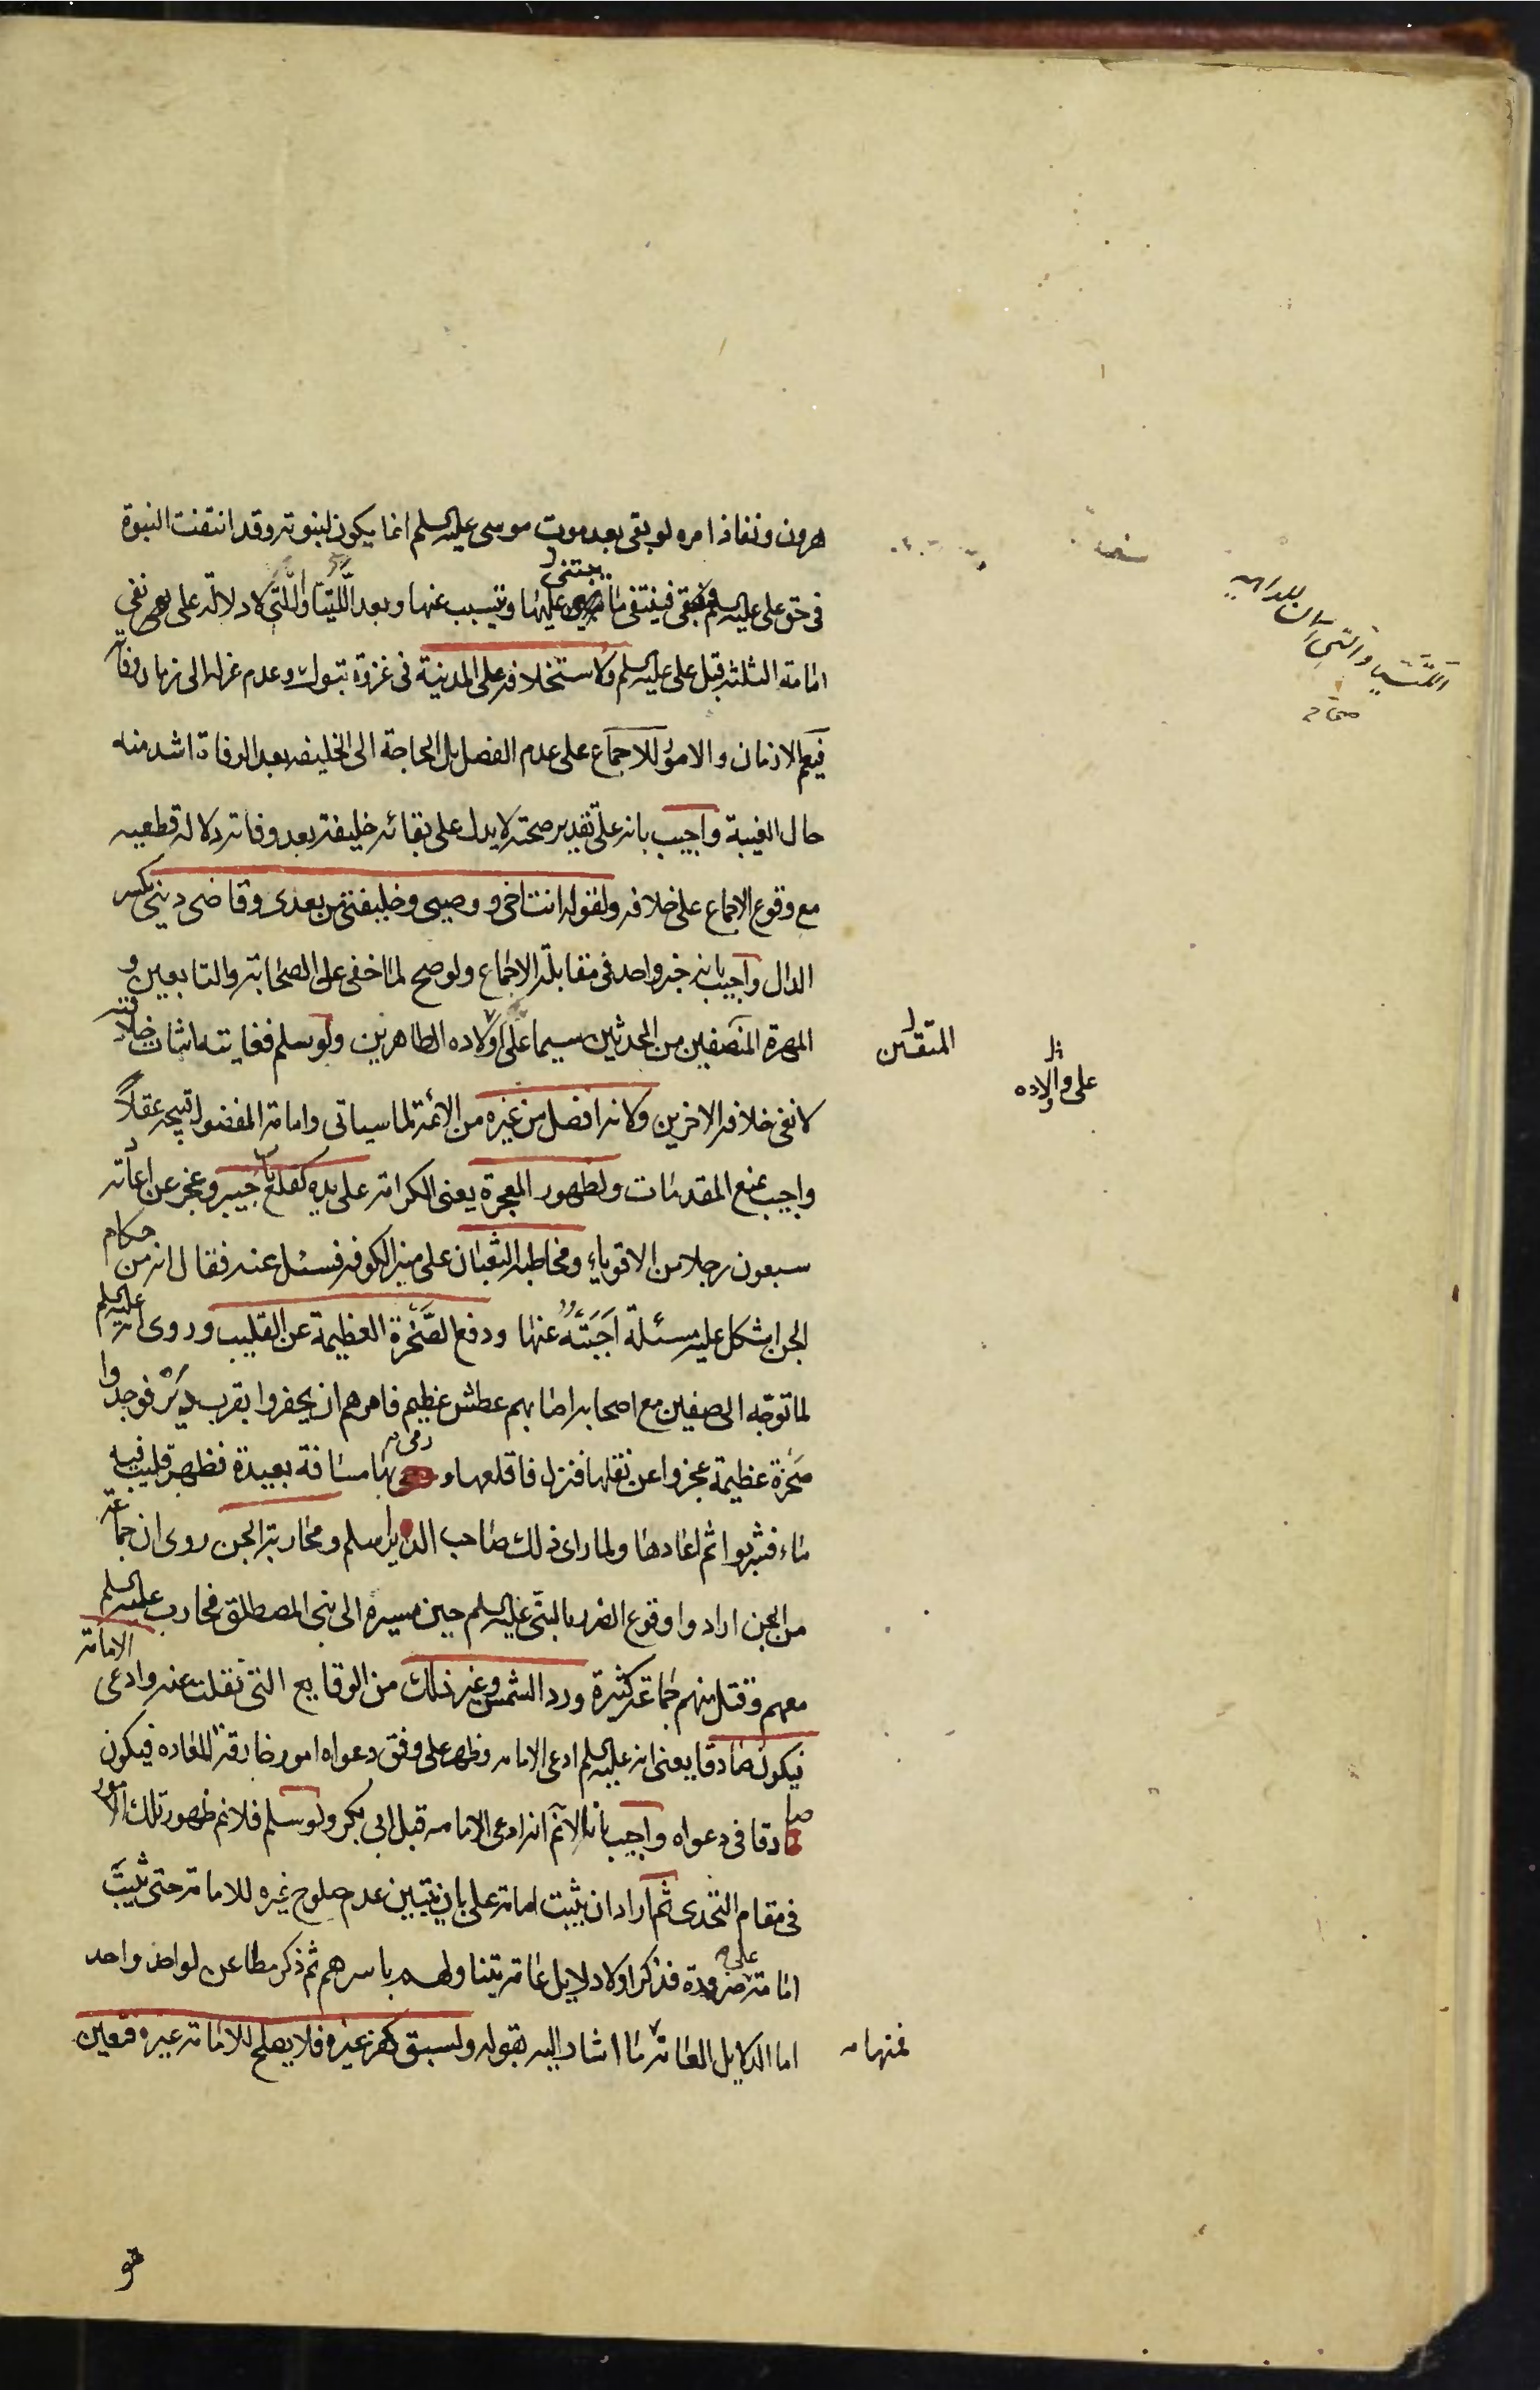 هرون ونفاذ امره لو بقى بعد موت موسى عليه السلم انما يكون لنبوته وقد انتفت النبوة
فى حق على عليه السلم فينتفى ما يبتنى عليها ويتسبب عنها وبعد اللتيا والتى لا دلالة على نفى
امامة الثلثة قبل على عليه السلم ولاستخلافه على المدينة فى غزوة تبوك وعدم عزله الى زمان وفاته
فيعم الازمان والامور للاجماع على عدم الفصل بل الحاجة الى الخليفه بعد الوفاة اشد منه
حال الغيبة واجيب بانه على تقدير صحته لا يدل على بقائه خليفة بعد وفاته دلالة قطعيه
مع وقوع الاجماع على خلافه ولقوله انت اخى ووصيى وخليفتى من بعدى وقاضى دينى بكسر
الدال واجيب بانه خبر واحد فى مقابلة الاجماع ولو صح لما خفى على الصحابة والتابعين و
المهرة المتصفين من المحدثين سيما على اولاده الطاهرين ولو سلم فغايته اثبات خلافته
لا نفى خلافة الاخرين ولانه افضل من غيره من الائمة لما سياتى وامامة المفضول قبيحة عقلاً
واجيب بمنع المقدمات ولظهور المعجزة يعنى الكرامة على يده كقلع باب خيبر وعجز عن اعادته
سبعون رجلا من الاقوياء ومخاطبة الثعبان على منبر الكوفه فسئل عنه فقال انه من حكام
الجن اشكل عليه مسئلة اجبته عنها ودفع الصخرة العظيمة عن القليب وروى انه عليه السلم
لما توجه الى صفين مع اصحابه اصابهم عطش عظيم فامرهم ان يحفروا بقرب دير فوجدوا
صخرة عظيمة عجزوا عن نقلها فنزل فاقلعها و رمى بها مسافة بعيدة فظهر قليب فيه
ماء فشربوا ثم اعادها ولما راى ذلك صاحب الدير اسلم ومحاربة الجن روى ان جماعة
من الجن ارادوا وقوع الضرر بالنبى عليه السلم حين مسيره الى بنى المصطلق فحارب عليه السلم
معهم وقتل منهم جماعة كثيرة ورد الشمس وغير ذلك من الوقايع التى نقلت عنه وادعى الامامة
فيكون صادقا يعنى انه عليه السلم ادعى الامامه وظهر على وفق دعواه امور خارقة للعاده فيكون
صادقا فى دعواه واجيب بانا لا نم انه ادعى الامامه قبل ابى بكر ولو سلم فلا نم ظهور تلك الامور
فى مقام التحدى ثم اراد ان يثبت امامة على بان يتبين عدم صلوح غيره للامامة حتى يثبت
امامة على ضرورة فذكر اولا دلايل عامة يتناولهم باسرهم ثم ذكر مطاعن لواحد واحد
اما الدلايل العامة ما اشار اليه بقوله ولسبق كفر غيره فلا يصلح للامامة غيره فتعين
المتقنين
على واولاده
فمنها